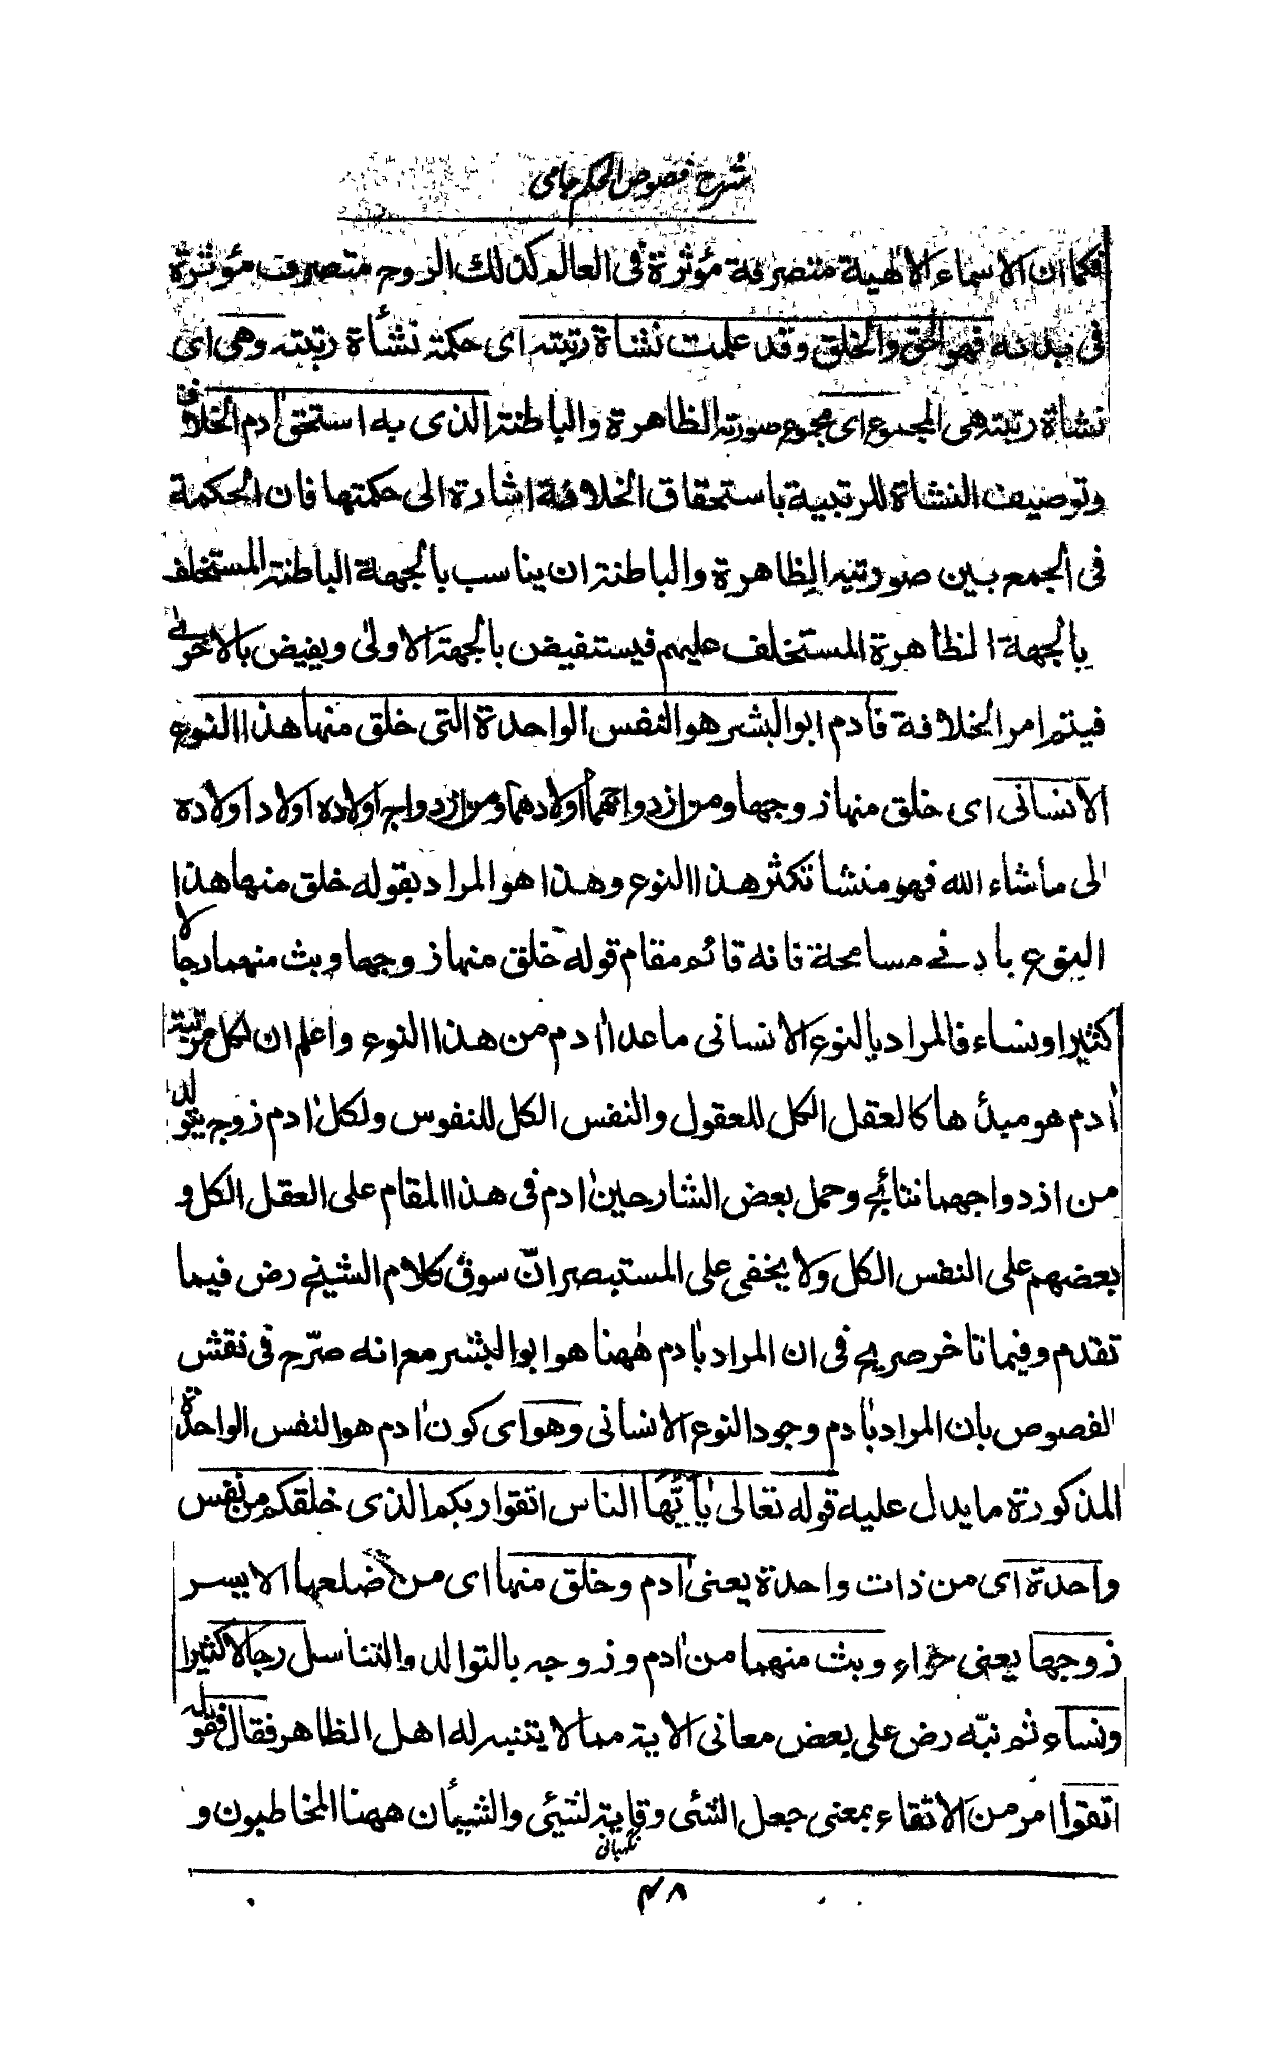 شرح فصوص الحكم جامى
فكما ان الاسماء الالهية متصرفة مؤثرة فى العالم كذلك الروح متصرف مؤثرة
فى بدنه فهو الحق والخلق وقد علمت نشاة رتبته اى حكمة نشأة رتبته وهى اى
نشاة رتبته هى المجموع اى مجموع صورته الظاهرة والباطنة الذى به استحق اٰدم الخلافة
وتوصيف النشاة للرتبية باستحقاق الخلافة اشارة الى حكمتها فان الحكمة
فى الجمع بين صورتيه الظاهرة والباطنة ان يناسب بالجهة الباطنة المستخلف
بالجهة الظاهرة المستخلف عليهم فيستفيض بالجهة الاولىٰ ويفيض بالاخرىٰ
فيتم امر الخلافة فاٰدم ابو البشر هو النفس الواحدة التى خلق منها هذا النوع
الانسانى اى خلق منها زوجها ومن ازدواجهما اولادهما ومن ازدواج اولاده اولاد اولاده
الى ما شاء الله فهو منشأ تكثر هذا النوع وهذا هو المراد بقوله خلق منها هذا
النوع بادنے مسامحة فانه قائم مقام قوله خلق منها زوجها وبث منهما رجالا
كثيرا ونساء فالمراد بالنوع الانسانى ما عدا اٰدم من هذا النوع واعلم ان لكل مرتبة
اٰدم هو مبدئها كالعقل الكل للعقول والنفس الكل للنفوس ولكل اٰدم زوج يتولد
من ازدواجهما نتائج وحمل بعض الشارحين اٰدم فى هذا المقام على العقل الكل و
بعضهم على النفس الكل ولا يخفى على المستبصر انّ سوق كلام الشيخ رض فيما
تقدم وفيما تاخر صريح فى ان المراد باٰدم هٰهنا هو ابو البشر مع انه صرّح فى نقش
الفصوص بان المراد باٰدم وجود النوع الانسانى وهو اى كون اٰدم هو النفس الواحدة
المذكورة ما يدل عليه قوله تعالى يٰاَيُّهَا الناس اتقوا ربكم الذى خلقكم من نفس
واحدة اى من ذات واحدة يعنى اٰدم وخلق منها اى من ضلعها الايسر
زوجها يعنى حواء وبث منهما من اٰدم وزوجه بالتوالد والتناسل رجالا كثيرا
ونساء ثم نبّه رض على بعض معانى الاية مما لا يتنبه له اهل الظاهر فقال فقوله
اتقوا امر من الاتقاء بمعنى جعل الشئى وقاية لشيئى والشيأن ههنا المخاطبون و
نگہبانی
۴۸